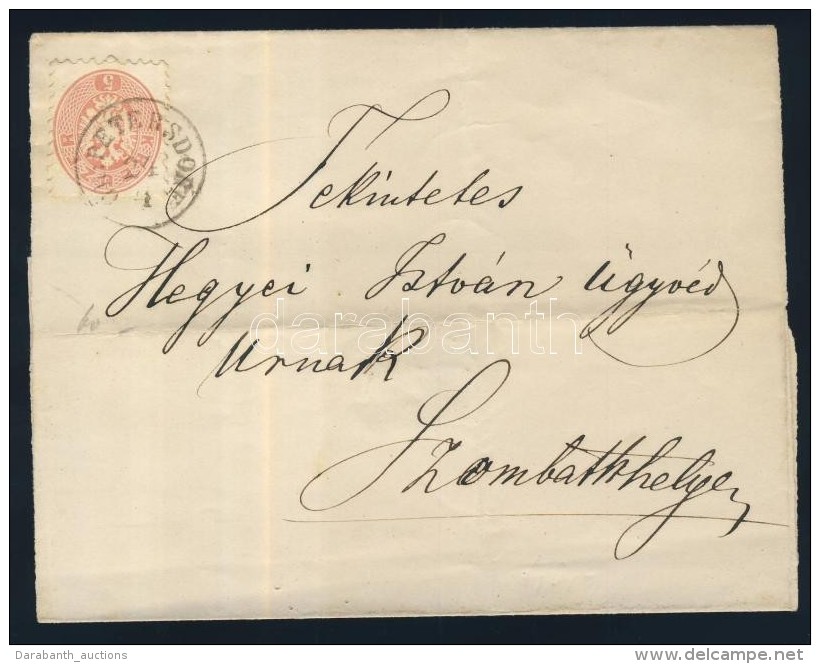 5
PETERSDORF
Tekintetes
Hegyei István ügyvéd
Urnak
Szombatkhelyen
darabanth
Darabanth_auctions
www.delcampe.net